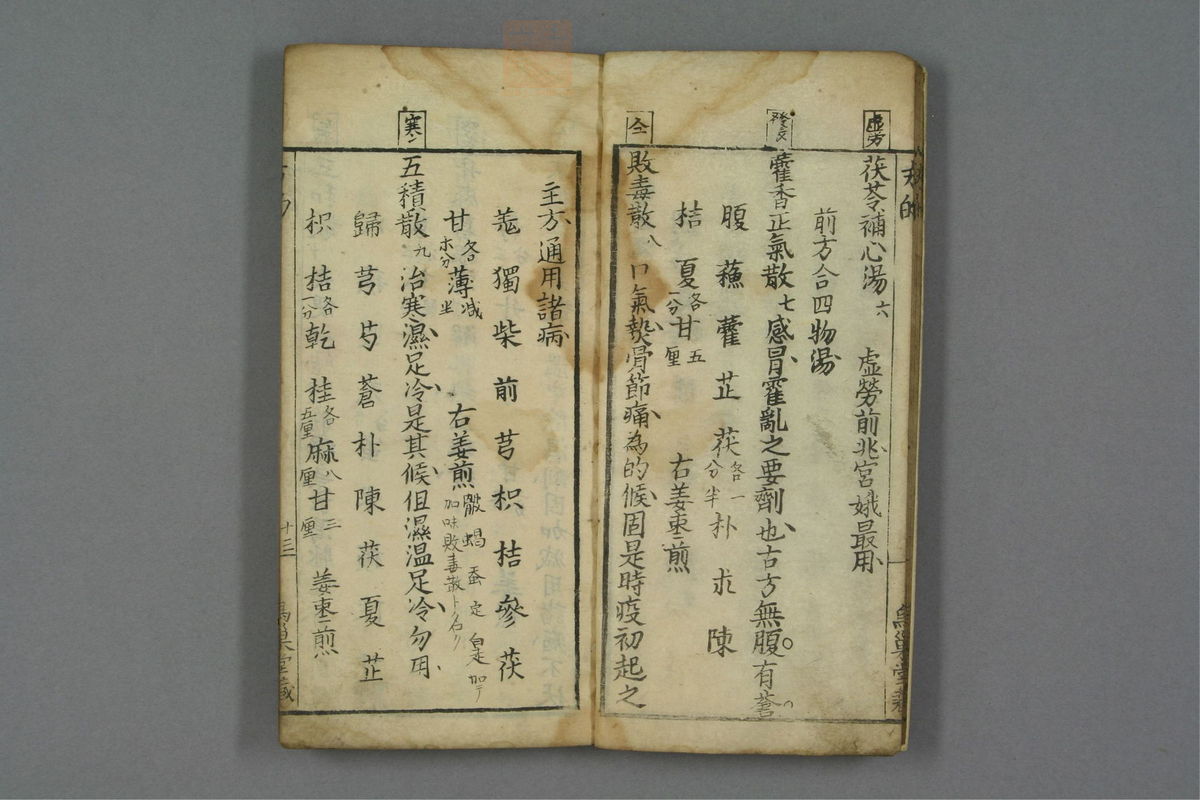 虚劳
茯苓補心湯六 虚勞前兆宮娥最用
前方合四物湯
發
藿香正氣散七感冒霍亂之要劑也古方無腹有蒼
腹 蘓 藿 芷 茯各一分半 朴 朮 陳
桔 夏各一分 甘五厘 右姜棗煎
仝
敗毒散八 口氣熱骨節痛為的候固是時疫初起之
主方通用諸病
羗 獨 柴 前 芎 枳 桔 參 茯
甘各 薄减 右姜煎
加味敗毒散ト名ク
寒
五積散九治寒濕足冷是其候但濕温足冷勿用
歸 芎 芍 蒼 朴 陳 茯 夏 芷
枳 桔各一分 乾 桂各五厘 麻八厘 甘三厘 姜棗煎
十三